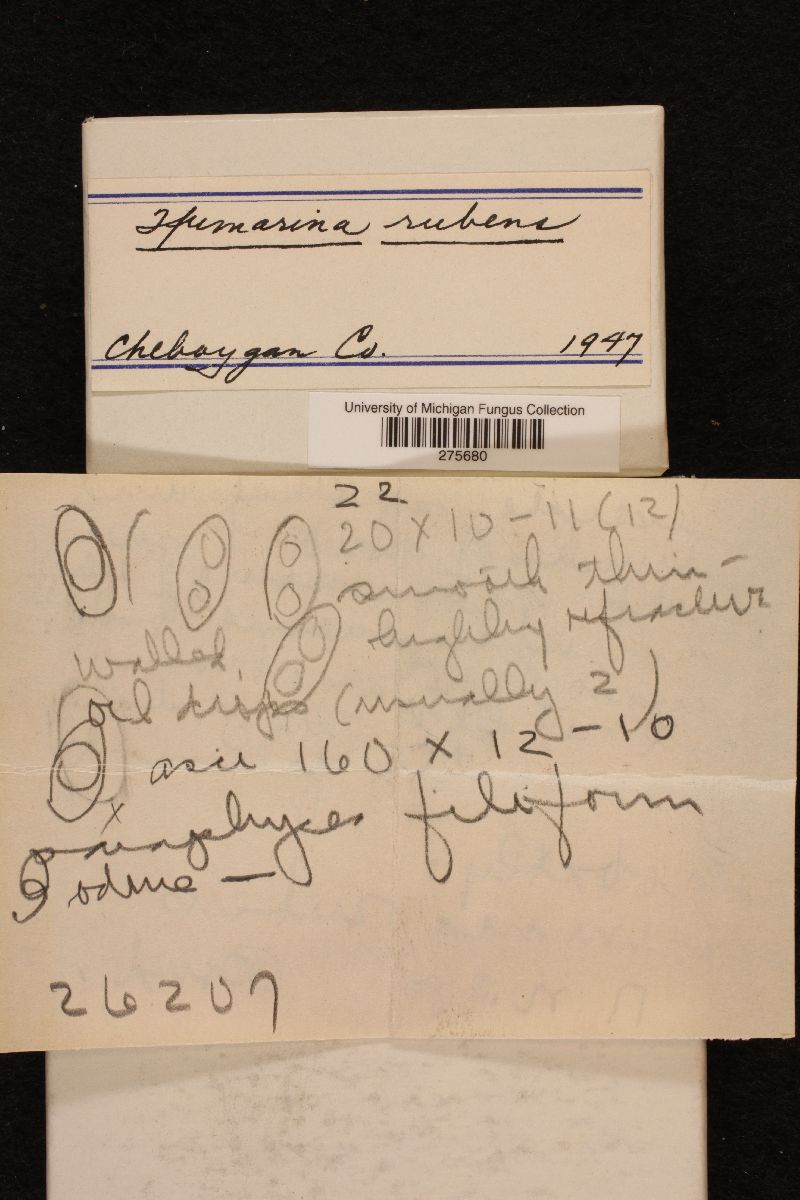 Spumarina rubens
Cheboygan Co. 1947
University of Michigan Fungus Collection
275680
22
20 x 10-11 (12)
smooth thin-
walled, highly refractive
oil drops (usually 2)
asci 160 x 12-10
paraphyses filiform
Iodine —
26207